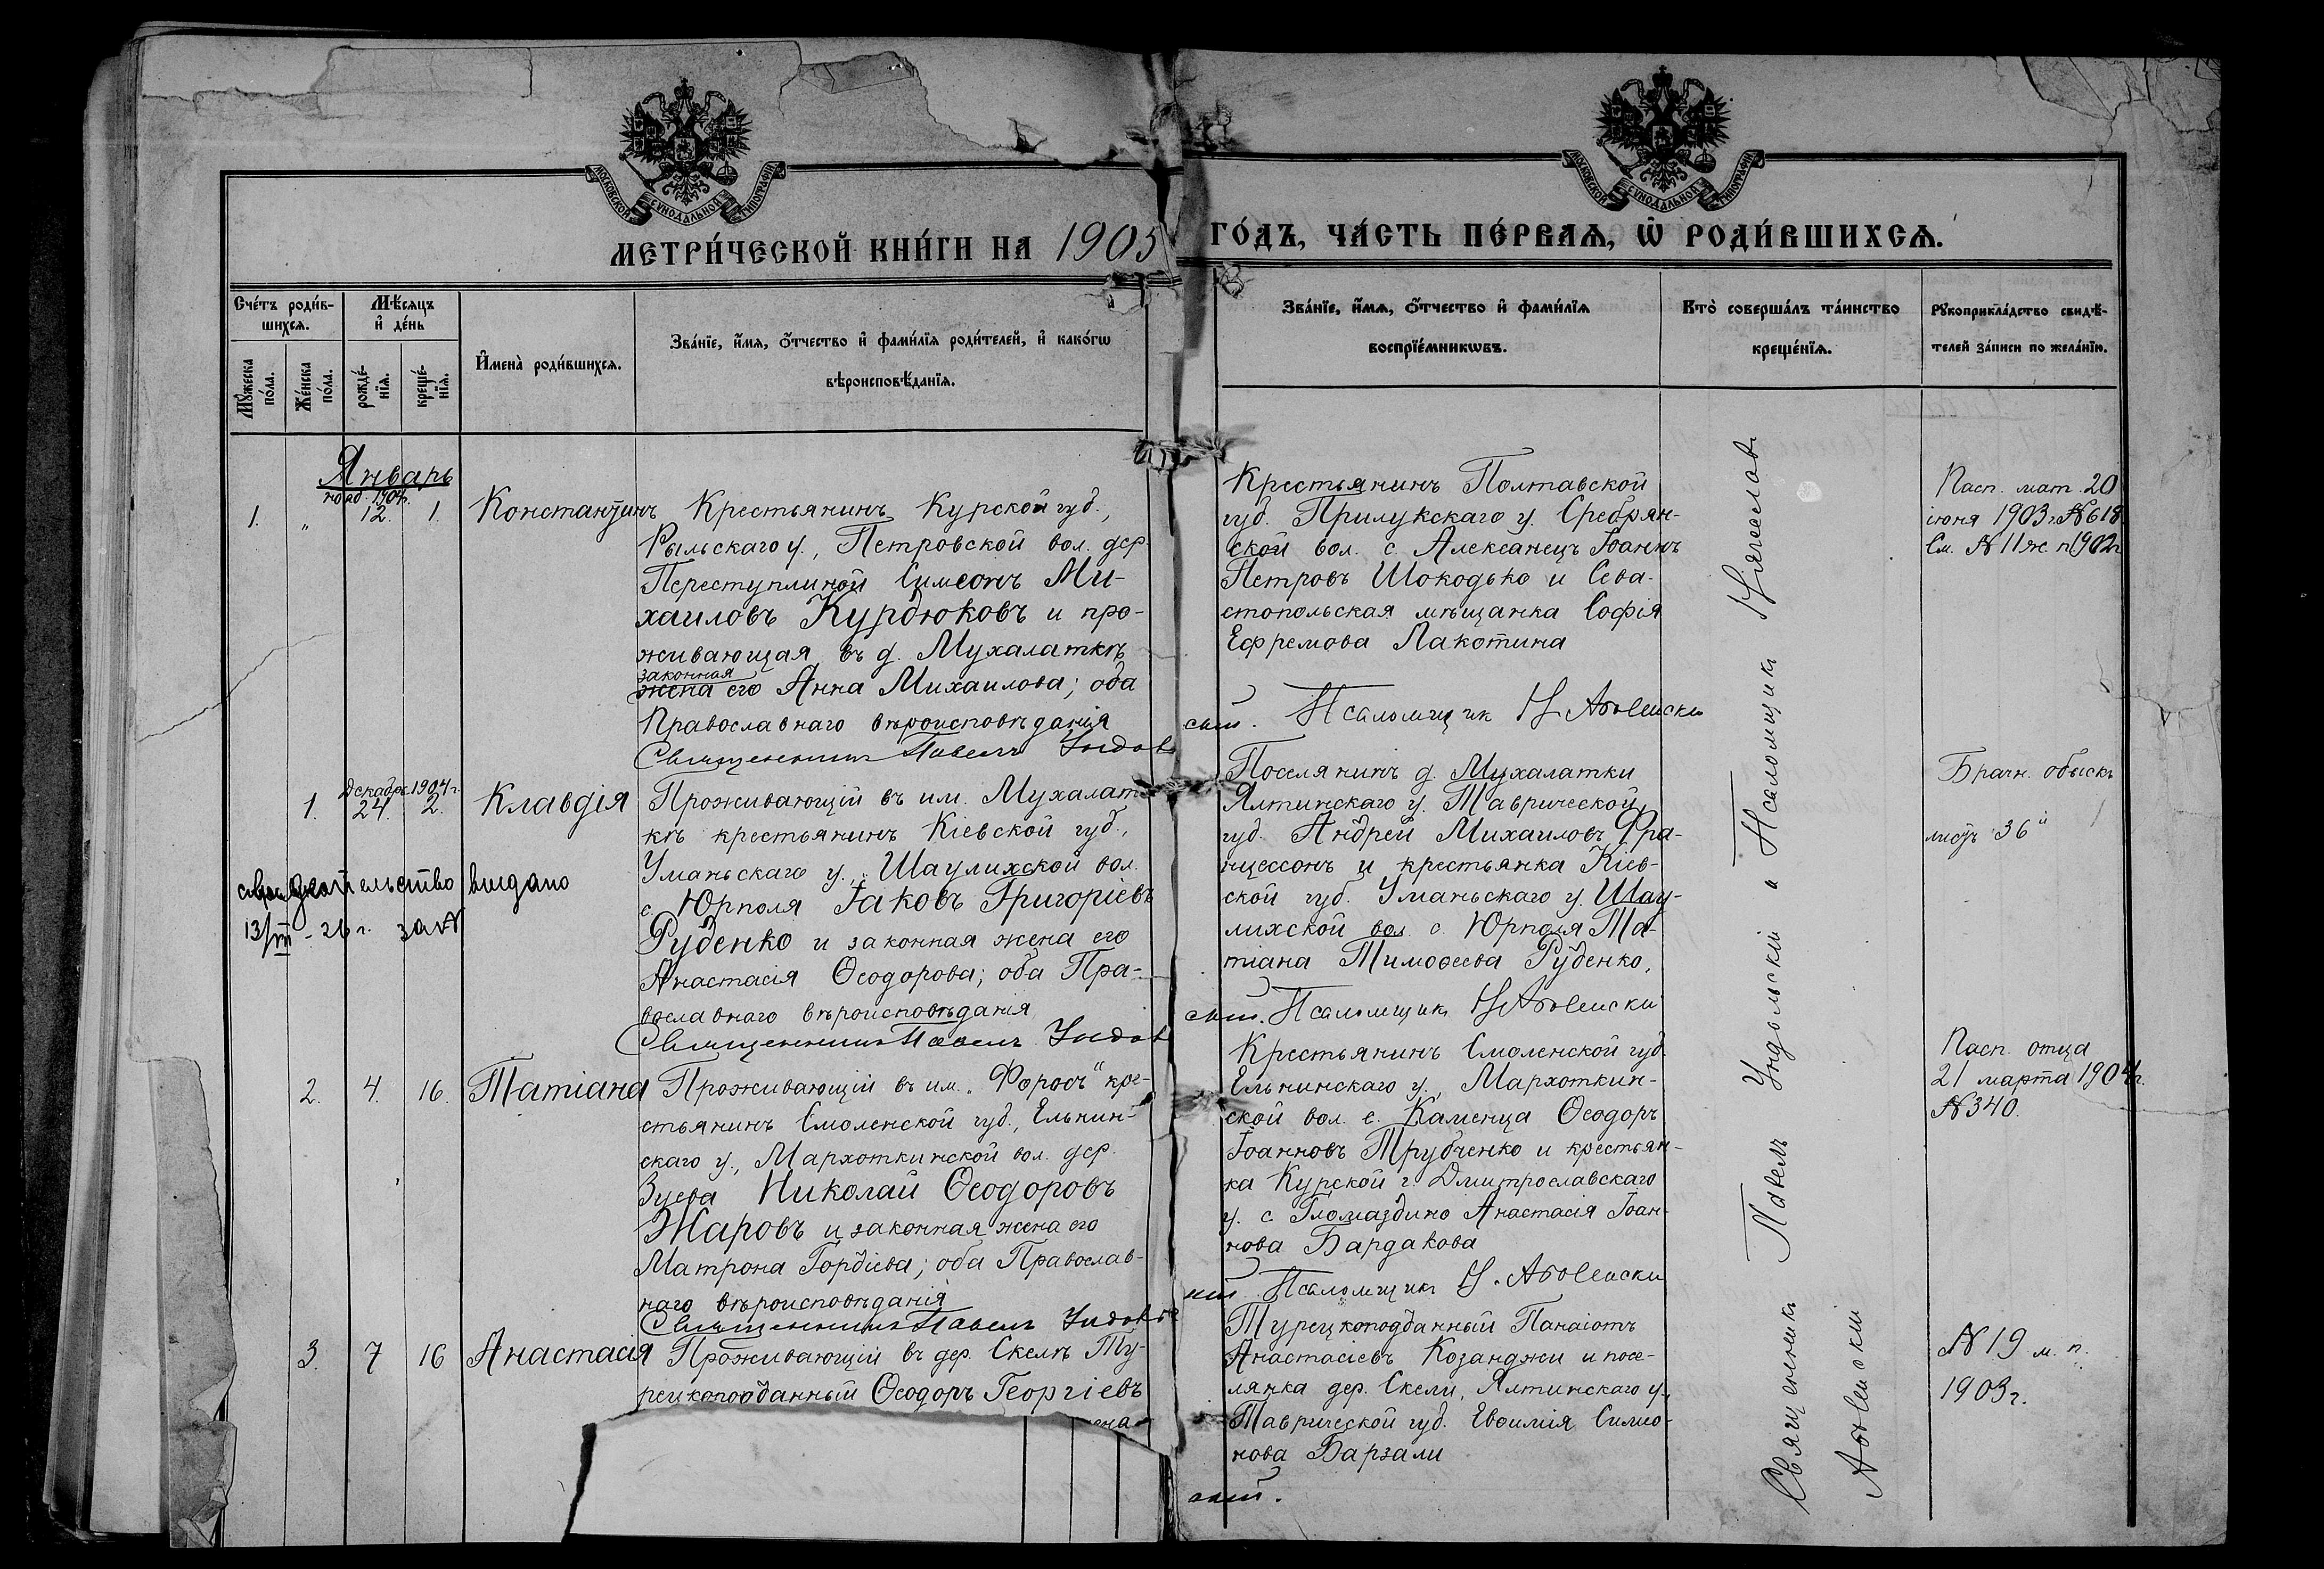 МОСКОВСКОЙ СѴНОДАЛЬНОЙ ТИПОГРАФІИ
МОСКОВСКОЙ СѴНОДАЛЬНОЙ ТИПОГРАФІИ
МЕТРИ́ЧЕСКОЙ КНИ́ГИ НА 1905 ГО́ДЪ, ЧА́СТЬ ПЕ́РВАѦ, Ѡ РОДИ́ВШИХСѦ.
Сче́тъ роди́в-
шихсѧ.
Мѣ́сѧцъ
и҆ де́нь
Мꙋ́жеска
по́ла.
Же́нска
по́ла.
рожде́-
нїѧ.
креще́-
нїѧ.
И҆мена̀ роди́вшихсѧ.
Зва́нїе, и҆́мѧ, ѻ҆́тчество и҆ фами́лїѧ роди́телей, и҆ како́гѡ
вѣроисповѣ́данїѧ.
Зва́нїе, и҆́мѧ, ѻ҆́тчество и҆ фами́лїѧ
воспрїе́мникѡвъ.
Кто̀ соверша́лъ та́инство
креще́нїѧ.
Рꙋкоприкла́дство свидѣ́-
телей за́писи по жела́нїю.
Январь
нояб. 1904г.
1. " 12. 1. Константинъ
Крестьянинъ Курской губ.,
Рыльскаго у., Петровской вол. дер.
Переступлиной Симеонъ Ми-
хаиловъ Курдюковъ и про-
живающая въ д. Мухалаткѣ
законная
жена его Анна Михаилова; оба
Православнаго вѣроисповѣданія
Священникъ Павелъ Ундольскій.
Крестьянинъ Полтавской
губ. Прилукскаго у. Сребрян-
ской вол. с. Алексанецъ Іоаннъ
Петровъ Шокодько и Сева-
стопольская мѣщанка Софія
Ефремова Лакотина
Псаломщик Н Або
Расп. мат. 20
іюня 1903г. № 618
См. № 11 ж. п 1902г
Декабрь 1904г.
1. 24. 2. Клавдія
Проживающій въ им. Мухалат-
кѣ крестьянинъ Кіевской губ.,
Уманьскаго у., Шаулихской вол.
с. Юрполя Іаковъ Григоріевъ
Руденко и законная жена его
Анастасія Ѳеодорова; оба Пра-
вославнаго вѣроисповѣданія
Священникъ Павелъ Ундольскій.
свидетельство выдано
13/III - 26 г. за №
Поселянинъ д. Мухалатки
Ялтинскаго у. Таврической
губ. Андрей Михаиловъ Фра-
нцессонъ и крестьянка Кіев-
ской губ. Уманьскаго у. Шау-
лихской вол. с. Юрполя Та-
тіана Тимоѳеева Руденко,
Псаломщикъ Н Або
Брачн. обыскъ
листъ 36й
2. 4. 16. Татіана
Проживающій въ им. „Форосъ" кре-
стьянинъ Смоленской губ., Ельнин-
скаго у., Мархоткинской вол. дер.
Зуева Николай Ѳеодоровъ
Жаровъ и законная жена его
Матрона Гордіева; оба Православ-
наго вѣроисповѣданія
Священникъ Павелъ Ундольскій.
Крестьянинъ Смоленской губ.
Ельнинскаго у., Мархоткин-
ской вол. с. Каменца Ѳеодоръ
Іоанновъ Трубченко и крестьян-
ка Курской г. Дмитрославскаго
у. с. Гломаздино Анастасія Іоан-
нова Бардакова
Псаломщикъ Н. Або
Расп. отца
21 марта 1904г.
№ 340.
3. 7 16 Анастасія
Проживающій въ дер. Скелѣ Ту-
рецкоподданный Ѳеодоръ Георгіевъ
жена
Турецкоподданный Панаіотъ
Анастасіевъ Козанджи и посе-
лянка дер. Скели, Ялтинскаго у.,
Таврической губ. Евѳимія Симео-
нова Барзали
№ 19 м. п.
1903г.
Священникъ Павелъ Ундольскій и Псаломщикъ Нячеслав